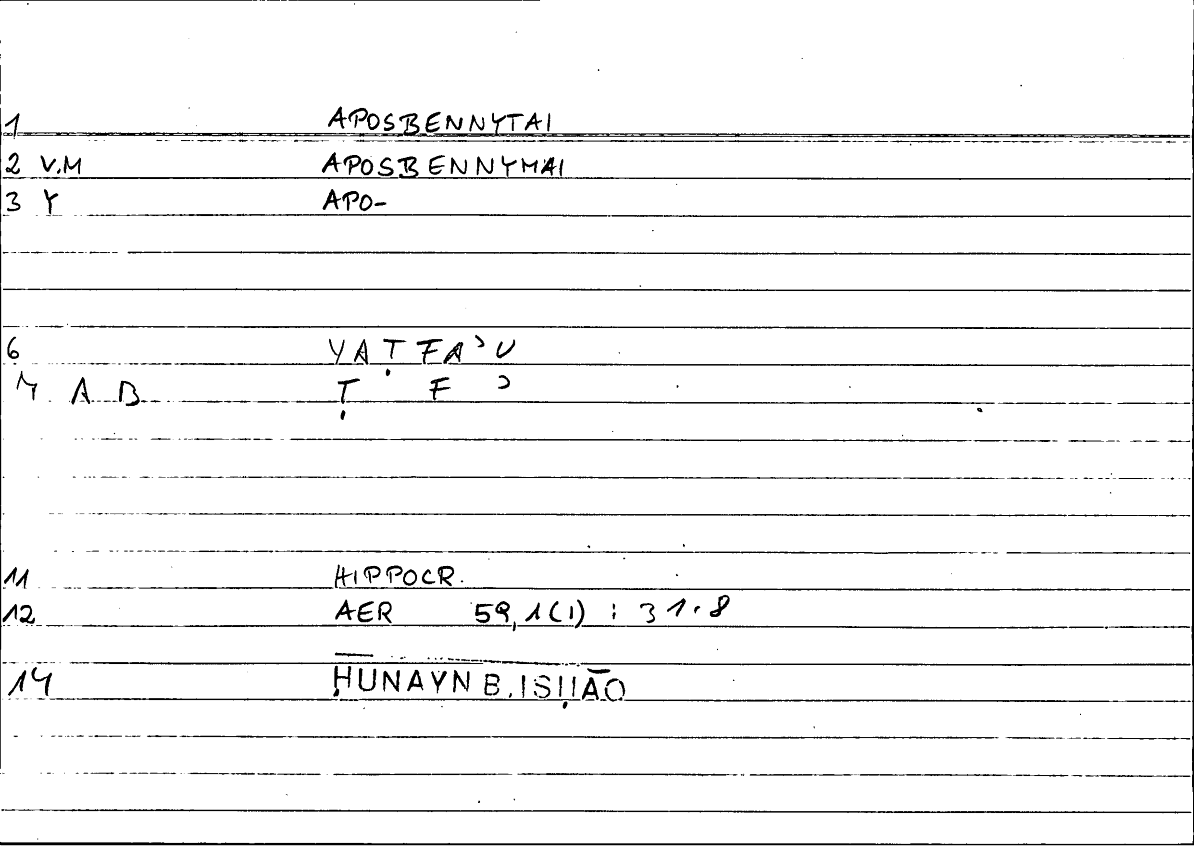 1 APOSBENNYTAI
2 V.M APOSBENNYMAI
3 Y APO-
6 YAṬFAʾU
M A B Ṭ F ʾ
11 HIPPOCR.
12 AER 59,1(1) : 31.8
14 ḤUNAYN B. ISḤĀQ